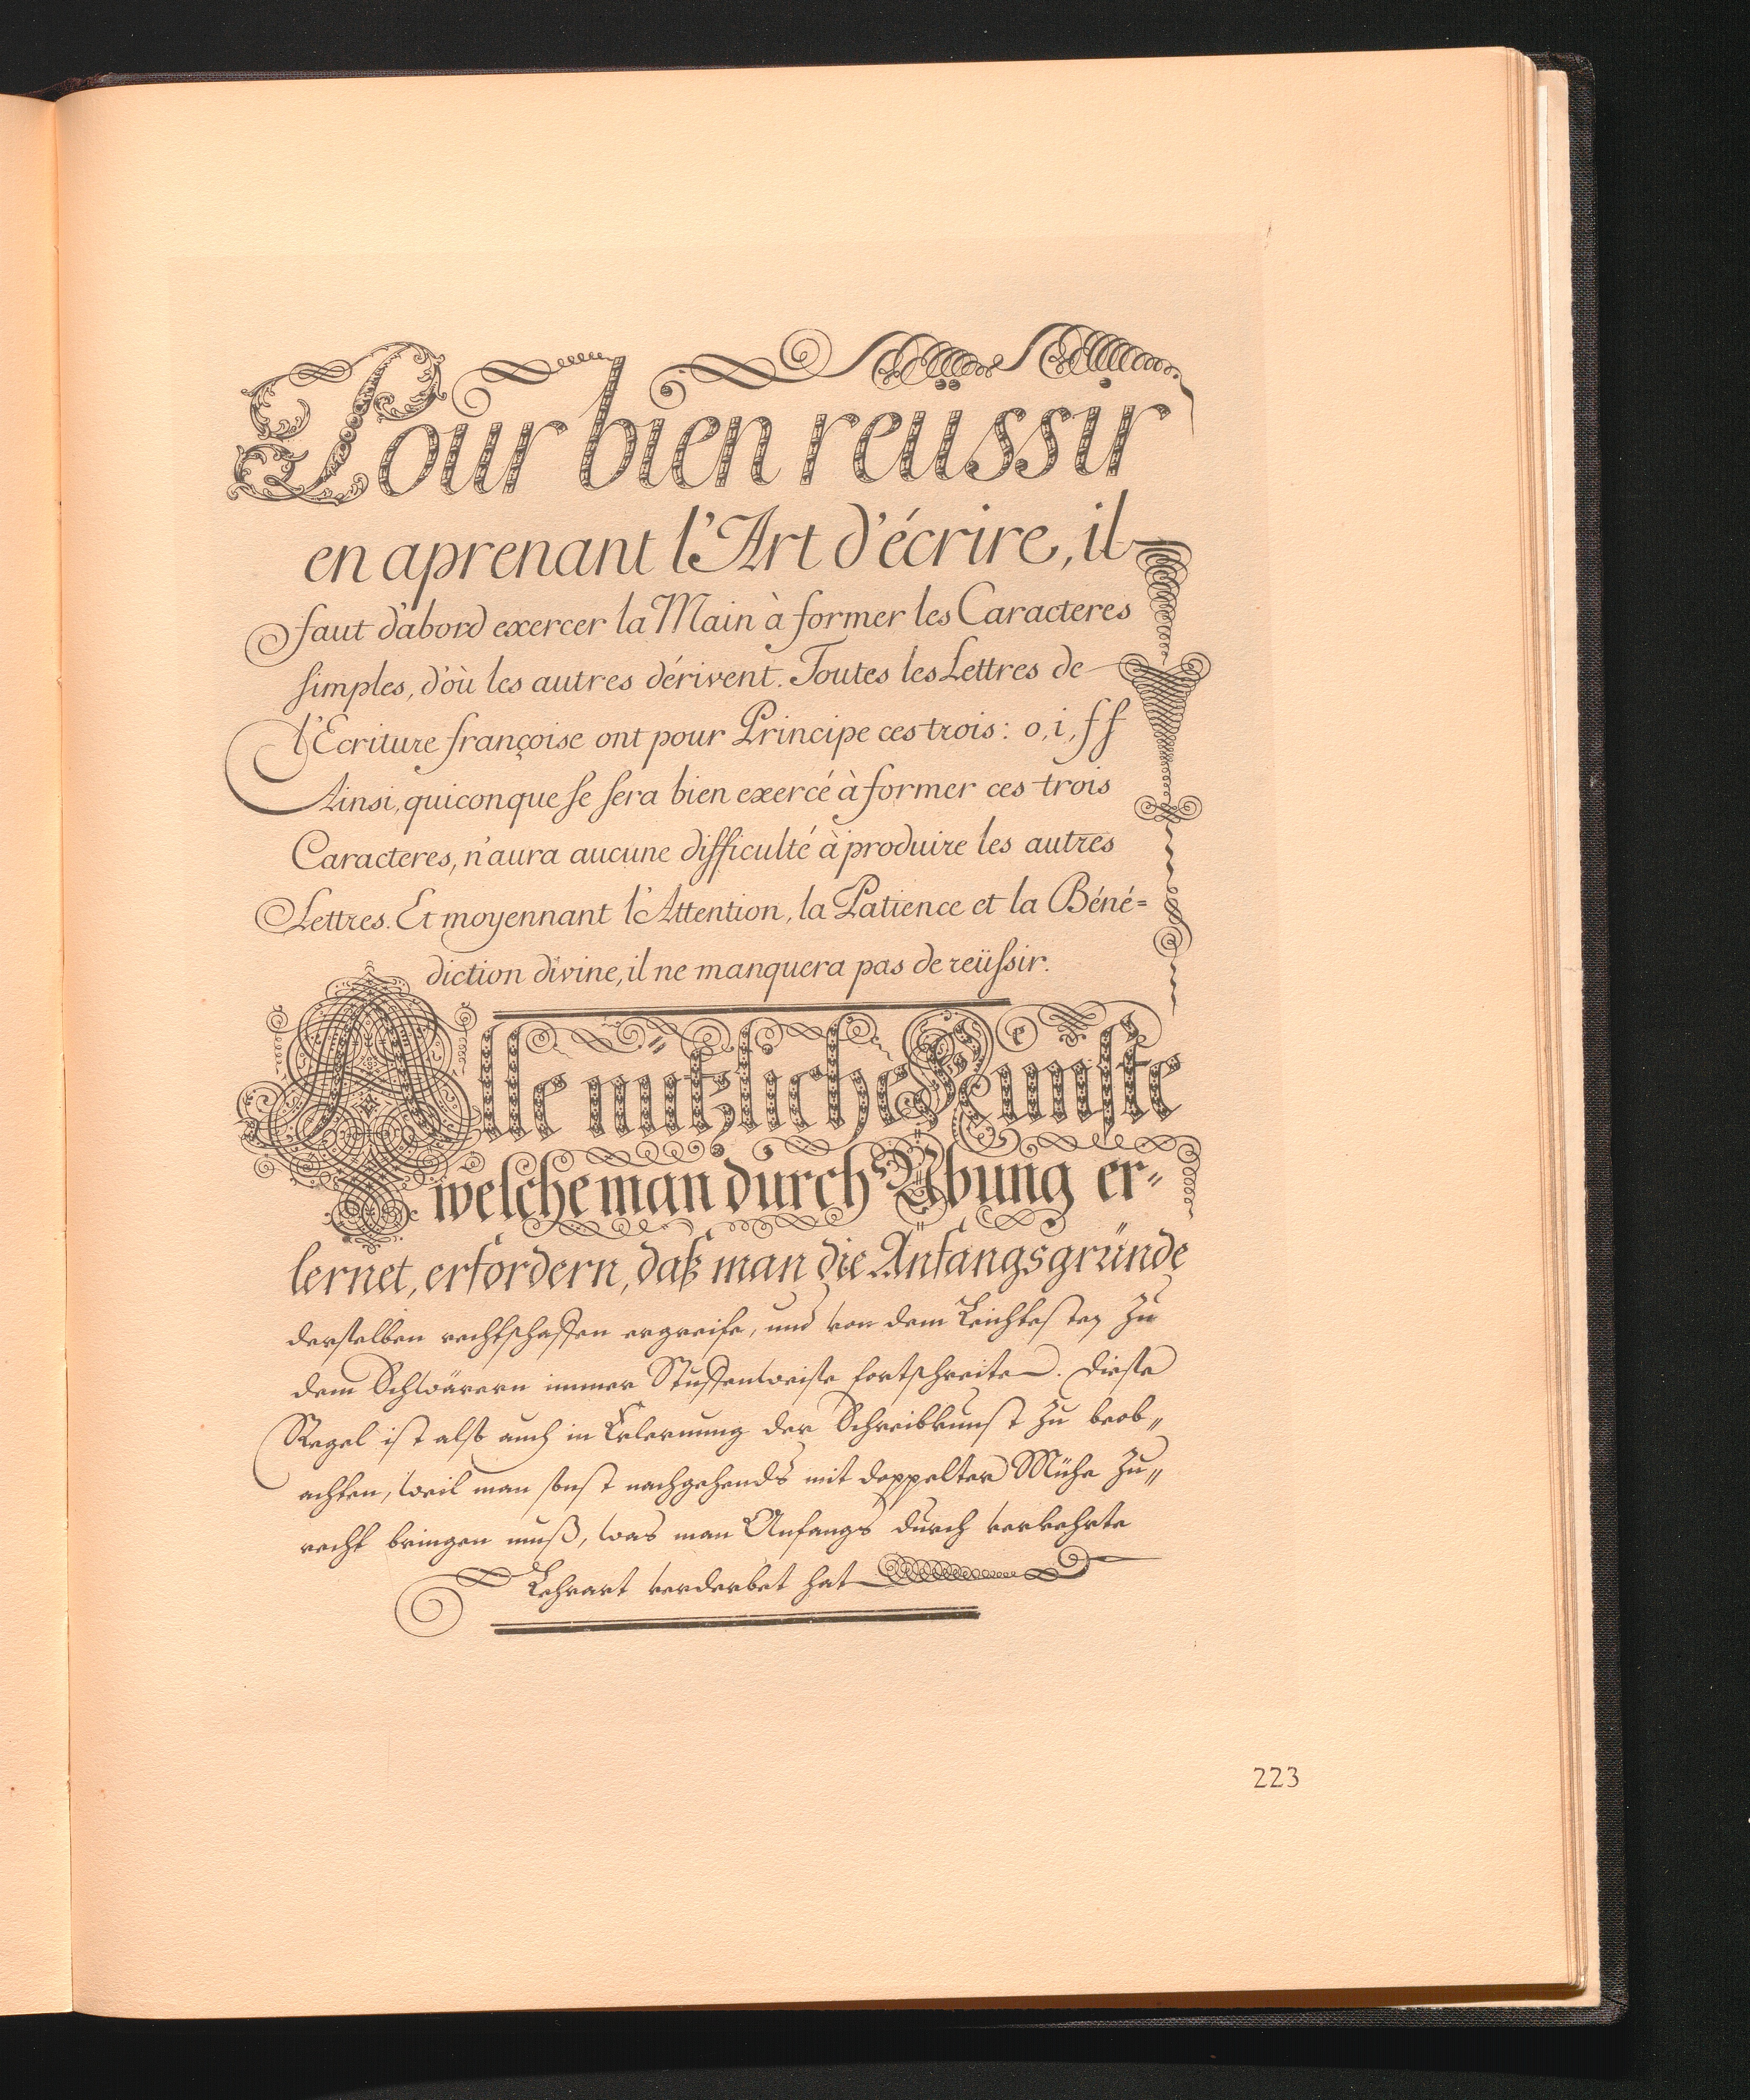 Pour bien reüssir
en aprenant l'Art d'écrire, il
faut d'abord exercer la Main à former les Caracteres
simples, d'où les autres dérivent. Toutes les Lettres de
l'Ecriture françoise ont pour Principe ces trois: o, i, ſf
Ainsi, quiconque ſe ſera bien exercé à former ces trois
Caracteres, n'aura aucune difficulté à produire les autres
Lettres. Et moyennant l'Attention, la Patience et la Béné=
diction divine, il ne manquera pas de reüſsir.
Alle nützliche Künſte
welche man durch Übung er=
lernet, erfordern, daß man die Anfangsgründe
derſelben rechtſchaffen ergreife, und von dem Leichteſten zu
dem Schwärern immer Stuffenweiſe fortſchreite. Dieſe
Regel iſt alſo auch in Erlernung der Schreibkunſt zu beob=
achten, weil man ſonſt nachgehends mit doppelter Mühe zu=
recht bringen muß, was man Anfangs durch verkehrte
Lehrart verderbet hat
223